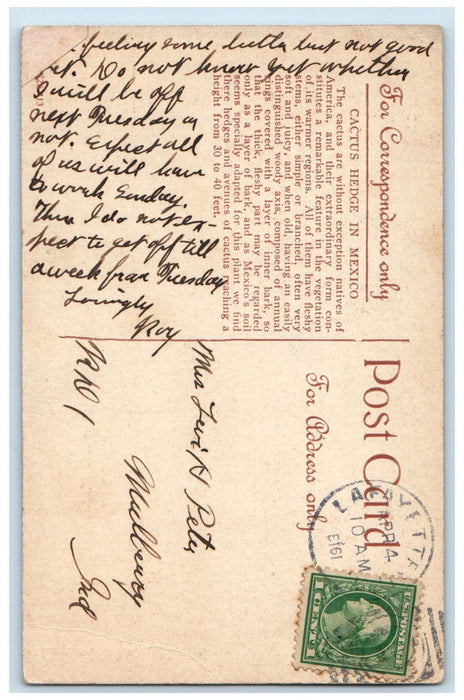 feeling some better but not good
yet. Do not know yet whether
I will be off
next Tuesday or
not. Expect all
of us will have
to work Sunday.
Then I do not ex-
pect to get off till
a week from Tuesday
Lovingly
Roy
For Correspondence only
CACTUS HEDGE IN MEXICO
The cactus are without exception natives of
America, and their extraordinary form con-
stitutes a remarkable feature in the vegetation
of its warmer regions. All of them have fleshy
stems, neither simple or branched, often very
soft and juicy, and when old, having an easily
distinguished woody axis, composed of annual
rings covered with a layer of inner bark, so
that the thick, fleshy part may be regarded
only as a layer of bark, and as Mexico's soil
seems specially adapted for this plant we find
there hedges and avenues of cactus reaching a
height from 30 to 40 feet.
Post Card
For Address only
Mrs Levi H Peter
Mulberry
Ind
R R 1
LAFAYETTE
APR 4
10 AM
1913
U.S. POSTAGE
1 CENT 1